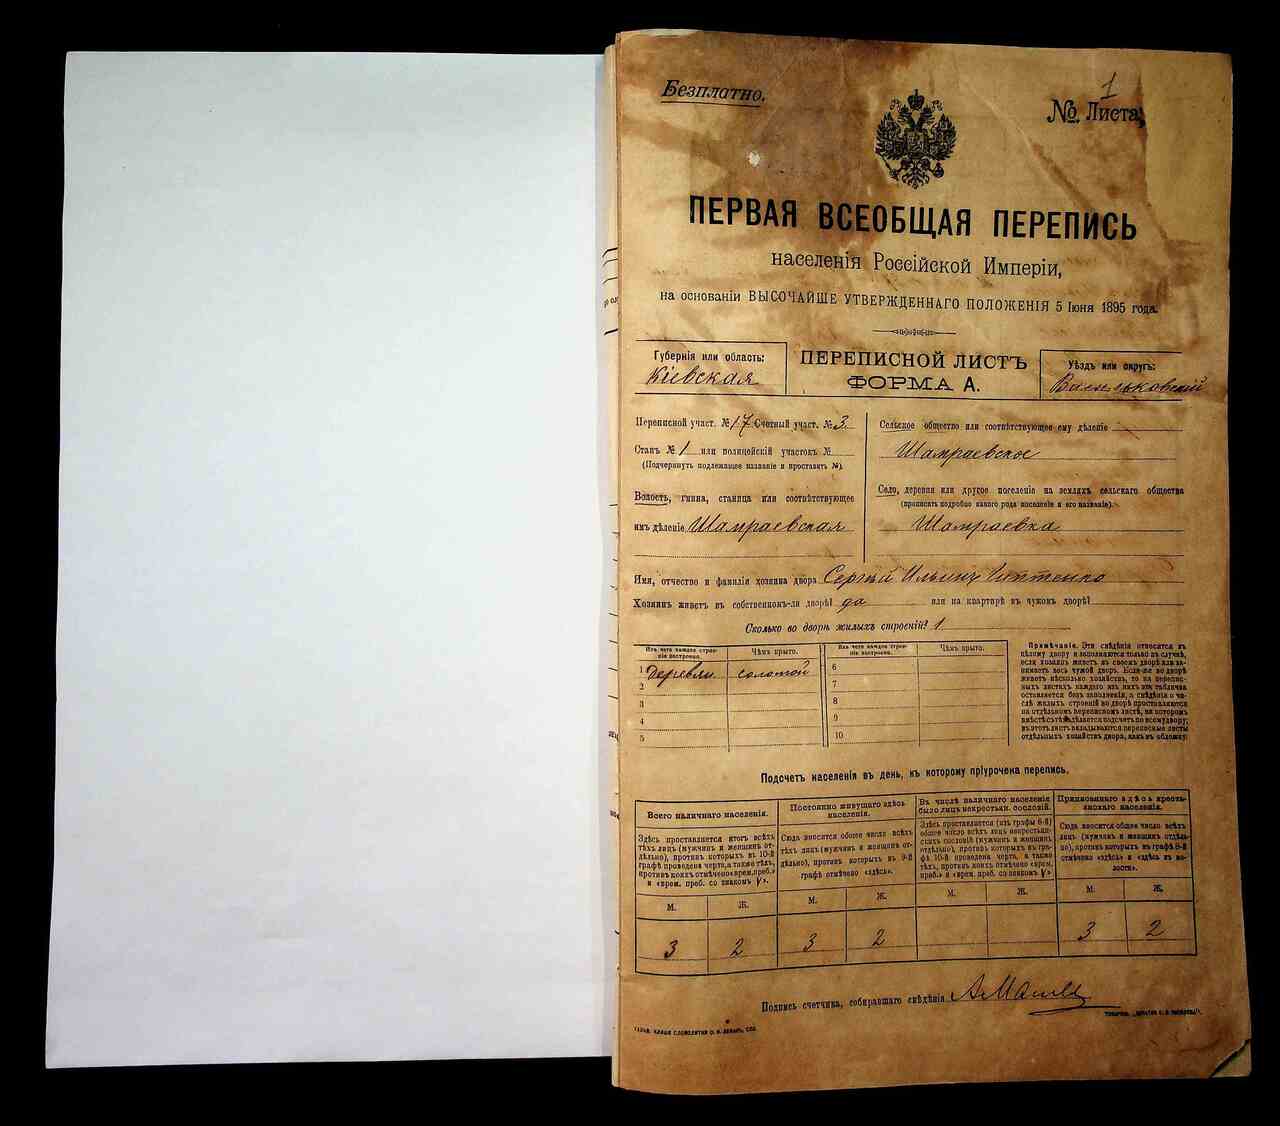 Безплатно.
1
№ Листа
ПЕРВАЯ ВСЕОБЩАЯ ПЕРЕПИСЬ
населенія Россійской Имперіи,
на основаніи ВЫСОЧАЙШЕ УТВЕРЖДЕННАГО ПОЛОЖЕНІЯ 5 Іюня 1895 года.
Губернія или область:
Кіевская
ПЕРЕПИСНОЙ ЛИСТЪ
ФОРМА А.
Уѣздъ или округъ:
Васильковскій
Переписной участ. № 17 Счетный участ. № 3
Станъ № 1 или полицейскій участокъ №
(Подчеркнуть подлежащее названіе и проставить №).
Волость, гмина, станица или соотвѣтствующее
имъ дѣленіе Шамраевская
Сельское общество или соотвѣтствующее ему дѣленіе
Шамраевское
Село, деревня или другое поселеніе на земляхъ сельскаго общества
(прописать подробно какого рода поселеніе и его названіе).
Шамраевка
Имя, отчество и фамилія хозяина двора Сергѣй Ильинъ
Хозяинъ живетъ въ собственномъ-ли дворѣ? да или на квартирѣ въ чужомъ дворѣ?
Сколько во дворѣ жилыхъ строеній? 1
Изъ чего каждое строе-
ніе построено.
Чѣмъ крыто.
1 деревян. соломой
2
3
4
5
Изъ чего каждое строе-
ніе построено.
Чѣмъ крыто.
6
7
8
9
10
Примѣчаніе. Эти свѣдѣнія относятся къ
цѣлому двору и заполняются только въ случаѣ,
если хозяинъ живетъ въ своемъ дворѣ или за-
нимаетъ весь чужой дворъ. Если-же во дворѣ
живетъ нѣсколько хозяйствъ, то на перепис-
ныхъ листахъ каждаго изъ нихъ эта табличка
оставляется безъ заполненія, а свѣдѣнія о чи-
слѣ жилыхъ строеній во дворѣ проставляются
на отдѣльномъ переписномъ листѣ, на которомъ
вмѣстѣ съ тѣмъ дѣлается подсчетъ по всему двору;
въ этотъ листъ вкладываются переписные листы
отдѣльныхъ хозяйствъ двора, какъ въ обложку.
Подсчетъ населенія въ день, къ которому пріурочена перепись.
Всего наличнаго населенія.
Здѣсь проставляется итогъ всѣхъ
тѣхъ лицъ (мужчинъ и женщинъ от-
дѣльно), противъ которыхъ въ 10-й
графѣ проведена черта, а также тѣхъ,
противъ коихъ отмѣчено «врем. преб.»
и «врем. преб. со знакомъ V».
М. Ж.
3 2
Постоянно живущаго здѣсь
населенія.
Сюда вносится общее число всѣхъ
тѣхъ лицъ (мужчинъ и женщинъ от-
дѣльно), противъ которыхъ въ 9-й
графѣ отмѣчено «здѣсь».
М. Ж.
3 2
Въ числѣ наличнаго населенія
было лицъ некрестьян. сословій.
Здѣсь проставляется (изъ графы 6-й)
общее число всѣхъ лицъ некрестьян-
скихъ сословій (мужчинъ и женщинъ
отдѣльно), противъ которыхъ въ гра-
фѣ 10-й проведена черта, а также
тѣхъ, противъ коихъ отмѣчено «врем.
преб.» и «врем. преб. со знакомъ V»
М. Ж.
Приписаннаго здѣсь кресть-
янскаго населенія.
Сюда вносится общее число всѣхъ
лицъ (мужчинъ и женщинъ отдѣль-
но), противъ которыхъ въ графѣ 8-й
отмѣчено «здѣсь» и «здѣсь въ во-
лости».
М. Ж.
3 2
Подпись счетчика, собиравшаго свѣдѣнія